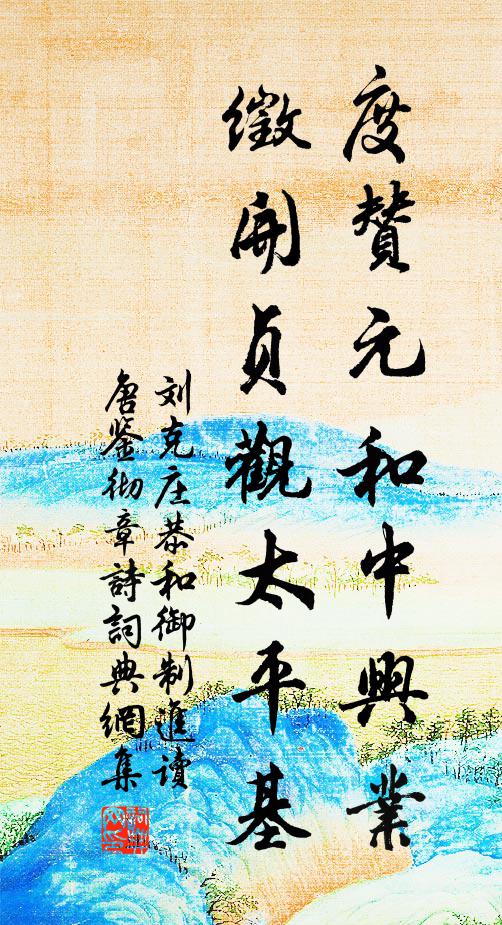 度贊元和中興業
徵開貞觀太平基
刘克庄恭和御制進讀
唐鉴彻章詩詞典網集